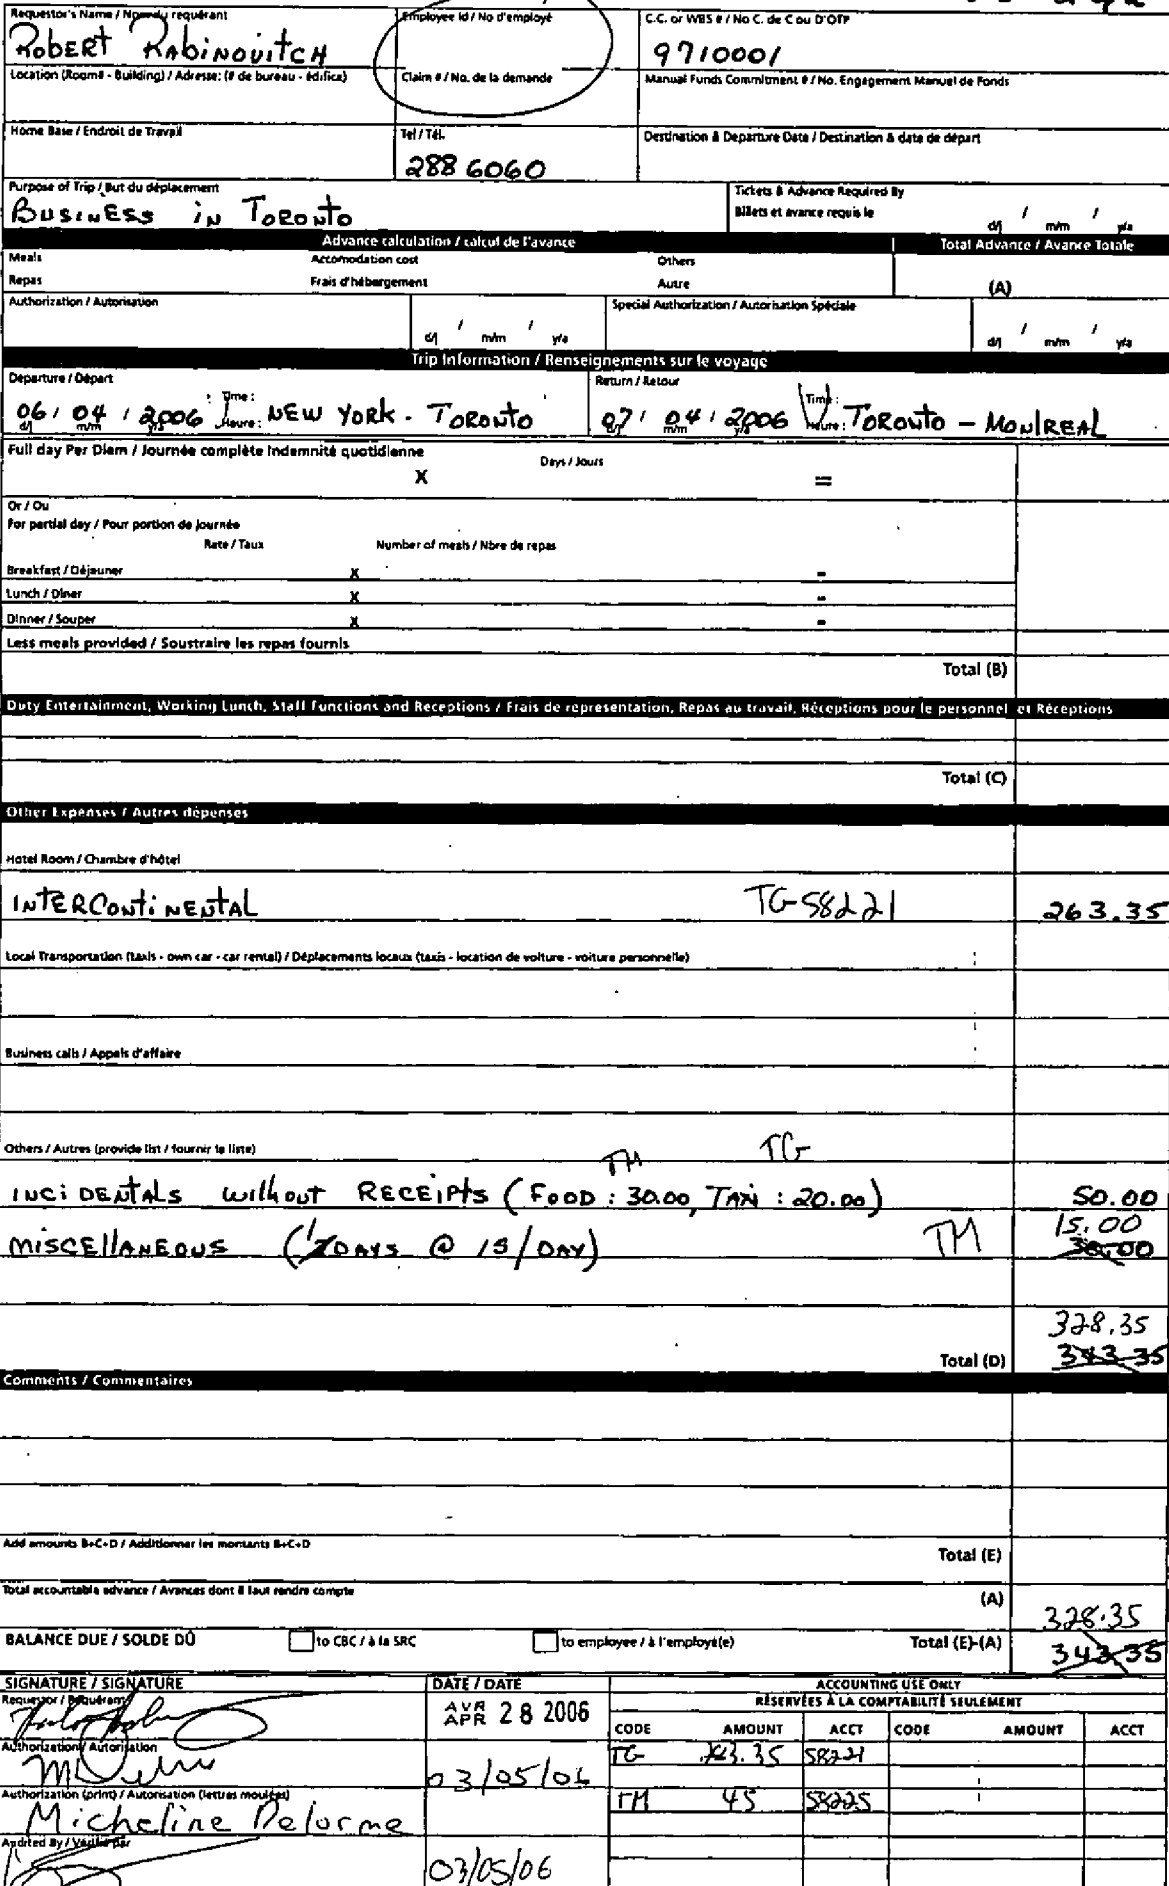 Requestor's Name / Nom du requérant
Robert Rabinovitch
Employee Id / No d'employé
C.C. or WBS # / No C. de C ou D'OTP
9710001
Location (Room# - Building) / Adresse: (# de bureau - édifice)
Claim # / No. de la demande
Manual Funds Commitment # / No. Engagement Manuel de Fonds
Home Base / Endroit de Travail
Tel / Tél.
288 6060
Destination & Departure Date / Destination & date de départ
Purpose of Trip / But du déplacement
Business in Toronto
Tickets & Advance Required By
Billets et avance requis le
d/j / m/m / y/a
Advance calculation / calcul de l'avance
Total Advance / Avance Totale
Meals Accomodation cost Others
Repas Frais d'hébergement Autre (A)
Authorization / Autorisation
d/j / m/m / y/a
Special Authorization / Autorisation Spéciale
d/j / m/m / y/a
Trip Information / Renseignements sur le voyage
Departure / Départ
06 / 04 / 2006 Time: Heure: New York - Toronto
d/j m/m y/a
Return / Retour
07 / 04 / 2006 Time: Heure: Toronto - Montreal
d/j m/m y/a
Full day Per Diem / Journée complète Indemnité quotidienne
X Days / Jours =
Or / Ou
For partial day / Pour portion de journée
Rate / Taux Number of meals / Nbre de repas
Breakfast / Déjeuner x =
Lunch / Dîner x =
Dinner / Souper x =
Less meals provided / Soustraire les repas fournis
Total (B)
Duty Entertainment, Working Lunch, Staff Functions and Receptions / Frais de représentation, Repas au travail, Réceptions pour le personnel et Réceptions
Total (C)
Other Expenses / Autres dépenses
Hotel Room / Chambre d'hôtel
InterContinental TG 58221 263.35
Local Transportation (taxis - own car - car rental) / Déplacements locaux (taxis - location de voiture - voiture personnelle)
Business calls / Appels d'affaire
Others / Autres (provide list / fournir la liste)
TM TG
Incidentals without receipts (Food : 30.00, Taxi : 20.00) 50.00
15.00
Miscellaneous (1 Days @ 15/Day) TM 30.00
328.35
Total (D) 343.35
Comments / Commentaires
Add amounts B+C+D / Additionner les montants B+C+D
Total (E)
Total accountable advance / Avances dont il faut rendre compte
(A)
328.35
BALANCE DUE / SOLDE DÛ to CBC / à la SRC to employee / à l'employé(e) Total (E)-(A) 343.35
SIGNATURE / SIGNATURE
DATE / DATE
ACCOUNTING USE ONLY
RÉSERVÉES À LA COMPTABILITÉ SEULEMENT
Requestor / Requérant
AVR
APR 28 2006
CODE AMOUNT ACCT CODE AMOUNT ACCT
Authorization / Autorisation
03/05/06
TG 58221
Authorization (print) / Autorisation (lettres moulées)
TM 45 58225
Micheline Delorme
Audited By / Vérifié par
03/05/06